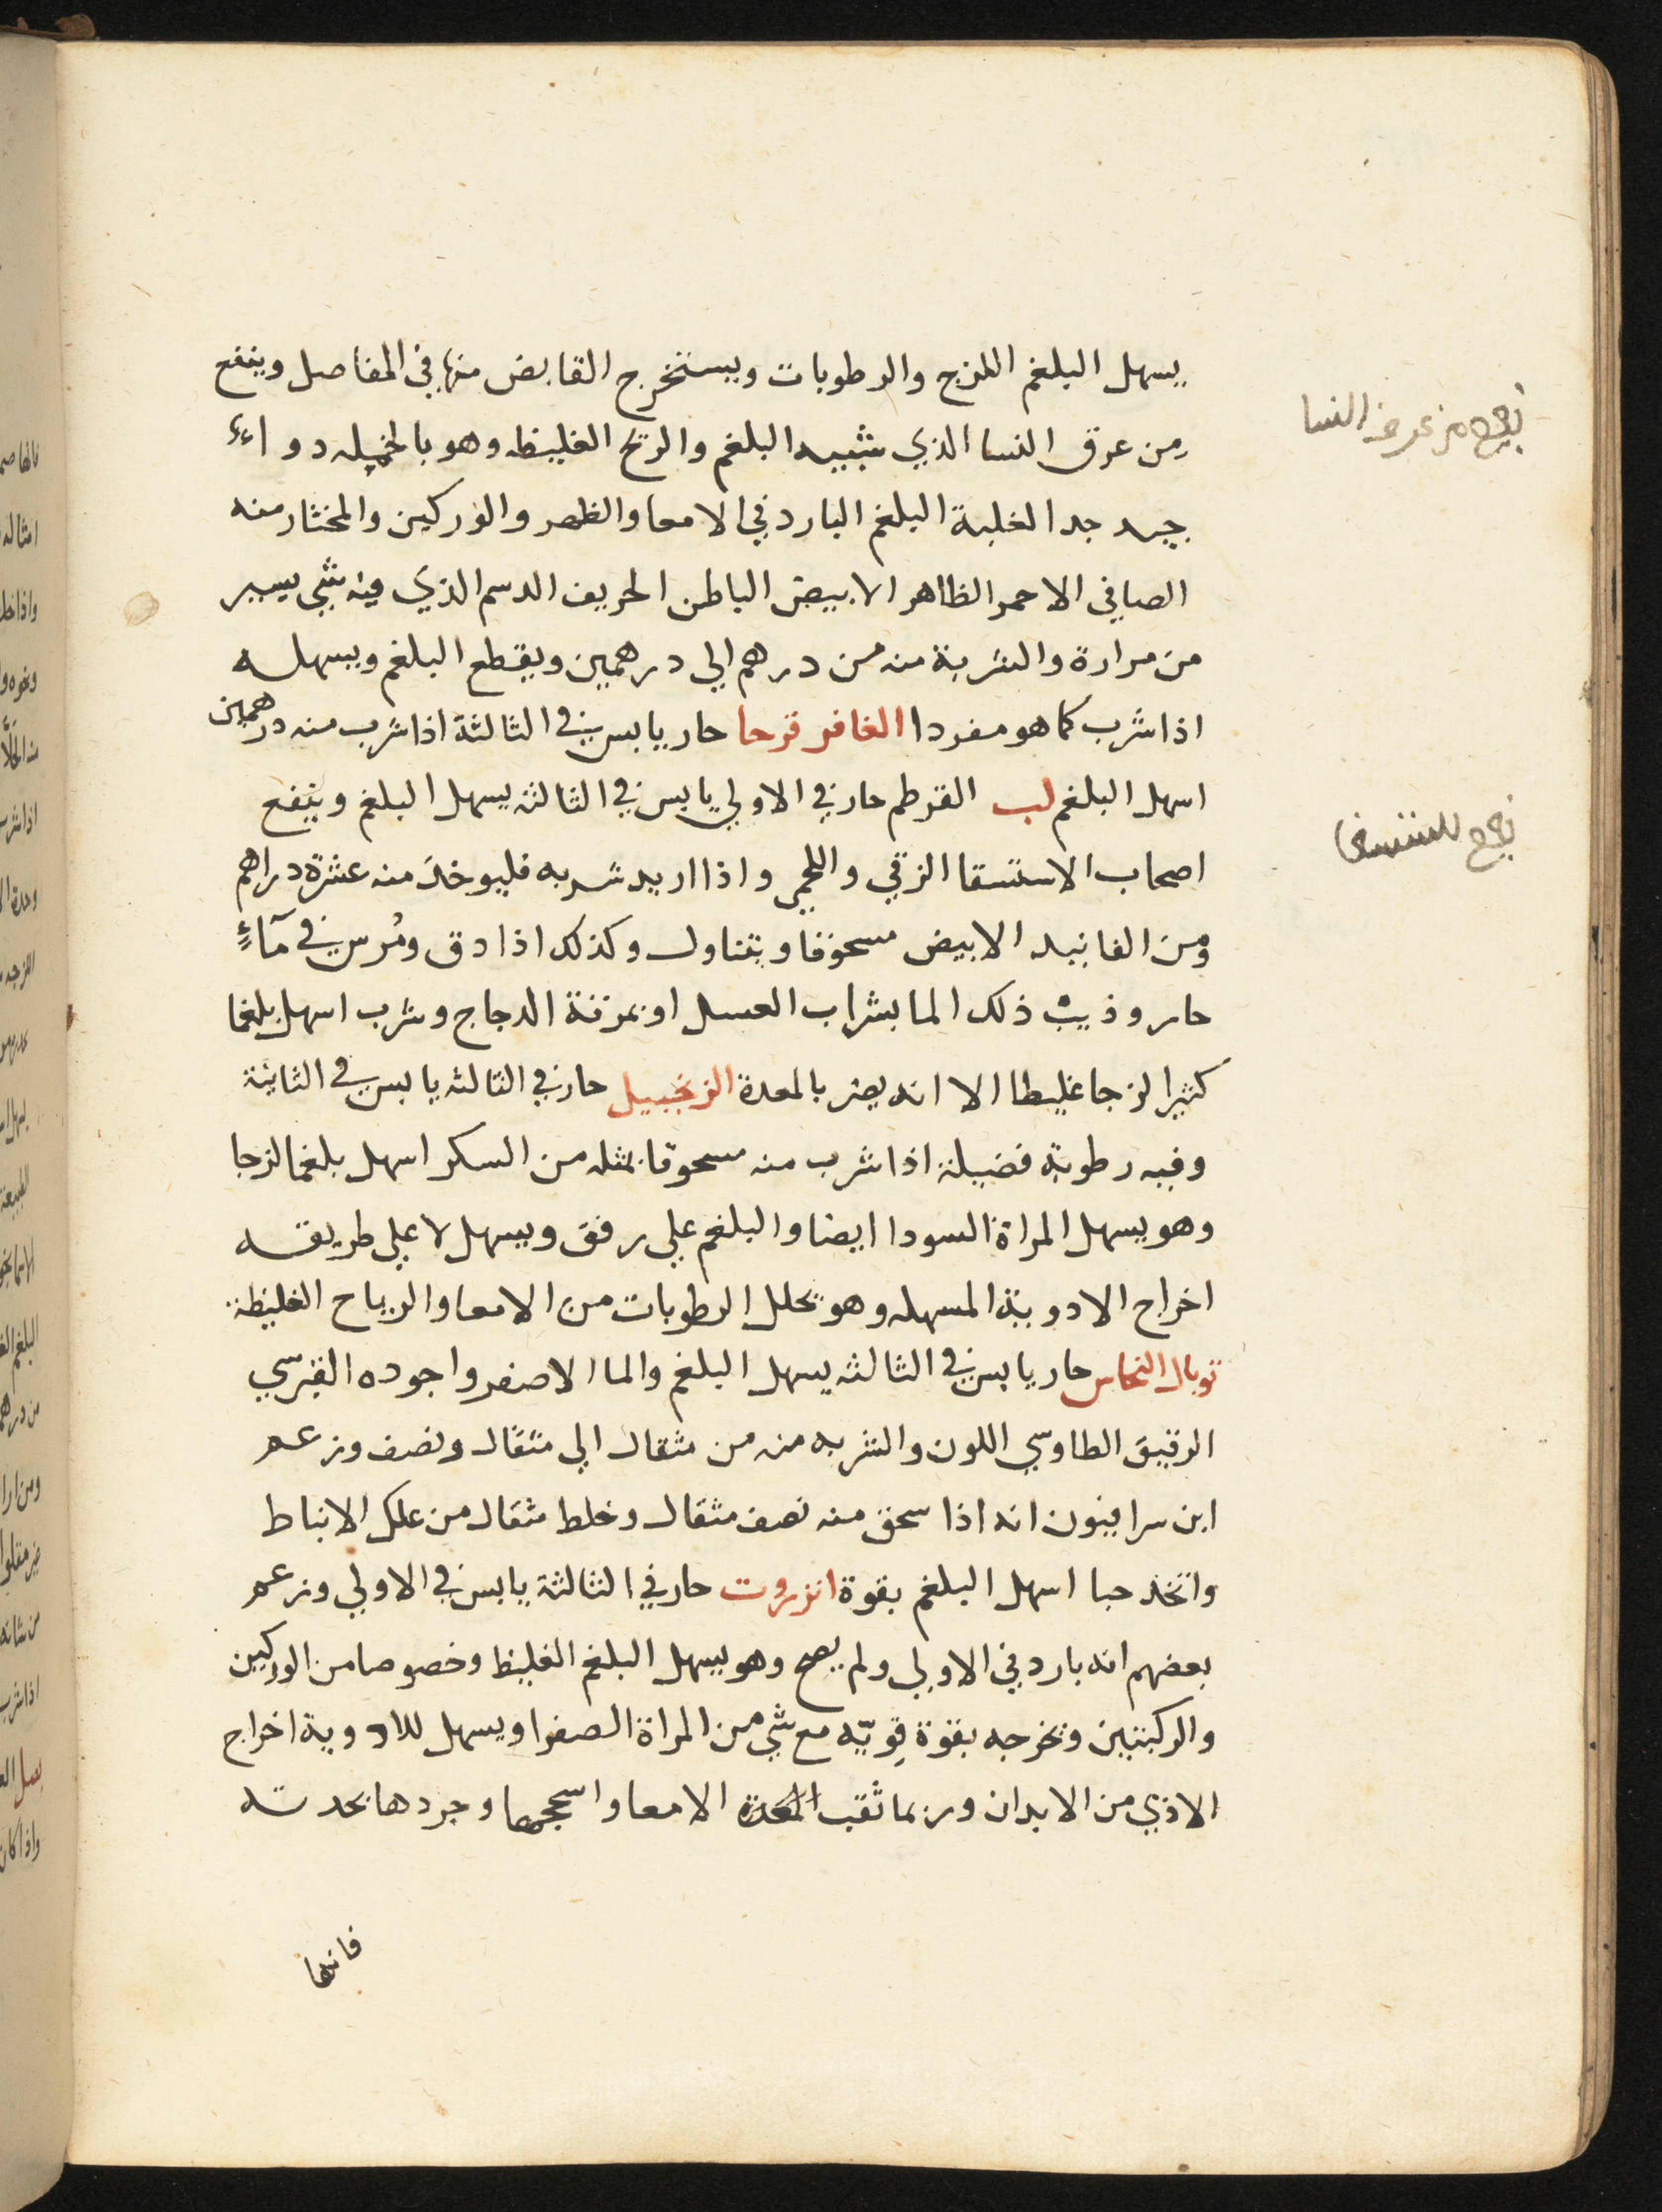 يسهل البلغم اللزج والرطوبات ويستخرج القابض منها في المفاصل وينفع
من عرق النسا الذي سببه البلغم والريح الغليظه وهو بالجمله دواء
جيد جدا لغلبة البلغم البارد في الامعا والظهر والوركين والمختار منه
الصافي الاحمر الظاهر الابيض الباطن الحريف الدسم الذي فيه شي يسير
من مرارة والشربة منه من درهم الي درهمين ويقطع البلغم ويسهله
اذا شرب كما هو مفردا الغافر قرحا حار يابس في الثالثة اذا شرب منه درهمين
اسهل البلغم لب القرطم حار في الاولي يابس في الثالثه يسهل البلغم وينفع
اصحاب الاستسقا الزقي واللحمي واذا اريد شربه فليوخذ منه عشرة دراهم
ومن الفانيد الابيض مسحوقا ويتناول وكذلك اذا دق ومُرس في مآءٍ
حار وذيب ذلك الما بشراب العسل او بمرقة الدجاج وشرب اسهل بلغما
كثيرا لزجا غليطا الا انه يضر بالمعدة الزنجبيل حار في الثالثه يابس في الثانية
وفيه رطوبة فضيلة اذا شرب منه مسحوقا بمثله من السكر اسهل بلغما لزجا
وهو يسهل المراة السودا ايضا والبلغم علي رفق ويسهل لا علي طريقه
اخراج الادوية المسهله وهو يحلل الرطوبات من الامعا والرياح الغليظة
توبال النحاس حار يابس في الثالثه يسهل البلغم والما الاصفر واجوده القبرسي
الرقيق الطاوسي اللون والشربه منه من مثقال الي مثقال ونصف وزعم
ابن سرافيون انه اذا سحق منه نصف مثقال وخلط مثقال من علك الانباط
واتخذ حبا اسهل البلغم بقوة انزروت حار في الثالثة يابس في الاولي وزعم
بعضهم انه بارد في الاولي ولم يصح وهو يسهل البلغم الغليظ وخصوصا من الوركين
والركبتين ويخرجه بقوة قويّه مع شي من المراة الصفرا ويسهل للادوية اخراج
الاذي من الابدان وربما ثقب المعدة الامعا واسحجها وجردها بحدته
فانها
من عرق النسا